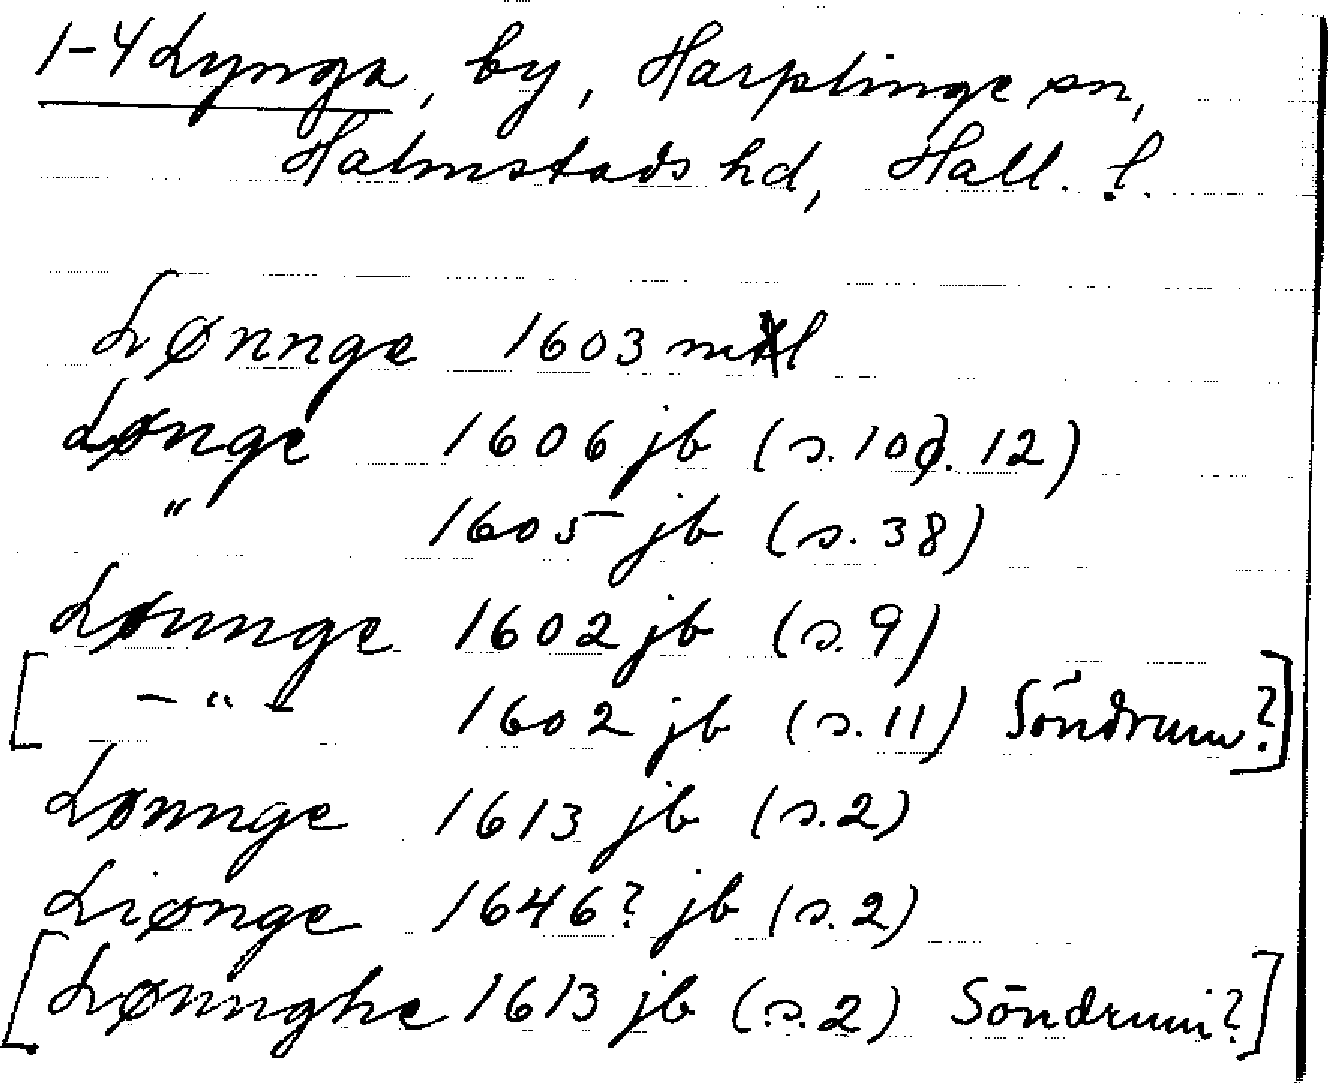 1-4 Lynga, by, Harplinge sn,
Halmstads hd, Hall. l.
Lønnge 1603 mtl
Lønge 1606 jb (s. 10 o. 12)
" 1605 jb (s. 38)
Lønnge 1602 jb (s. 9)
[ -"- 1602 jb (s. 11) Söndrum?]
Lønnge 1613 jb (s. 2)
Liønge 1646? jb (s. 2)
[Lønnghe 1613 jb (s. 2) Söndrum?]